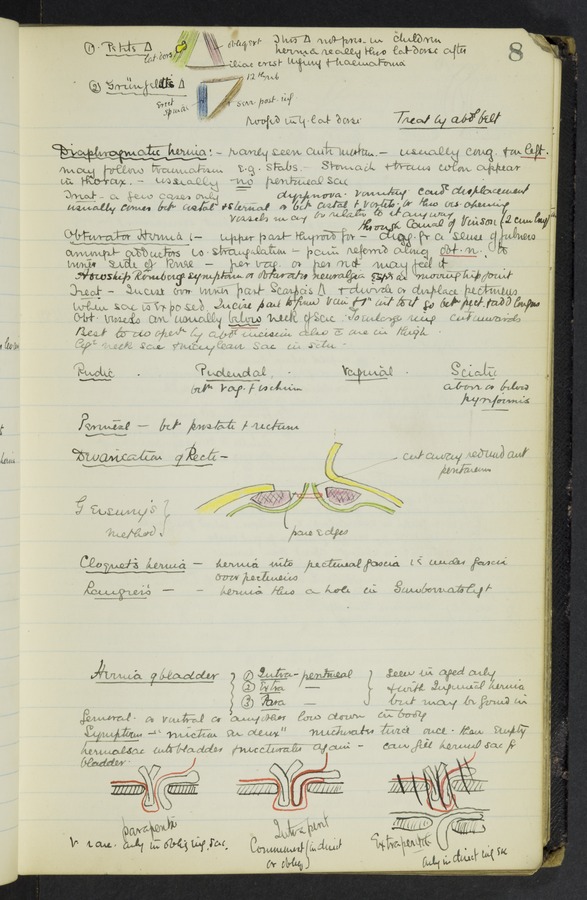 8
(1) Petits Δ
lat. dorsi
obliq ext
iliac crest
This Δ not pres. in children
hernia really thro lat dorsi after
injury + haematoma
(2) Grünfeltts Δ
12th rib
Erect spinae
Serr. post. inf
roofed in by lat dorsi
Treat by abdl belt
Diaphragmatic hernia :- rarely seen - usually cong. + on left.
may follow traumatism e.g. stabs. - Stomach + trans colon appear
in thorax. - usually no peritoneal sac
Treat - a few cases only dyspnoea vomiting card displacement
usually comes bet costal + sternal or bet costal + vertebr. or thro oes. opening
vessels may be in relatn to it anyway
Obturator Hernia :- upper part thyroid for - through Canal of
amongst adductors so strangulation - pain referred along obt. n. to
inner side of knee - per vag. or per rect may feel it
Howship Romberg symptom is obturator neuralgia on moving hip joint
Treat - Incise over inner part Scarpa's Δ + divide or displace pectineus
when sac is exposed. go bet pect. + add longus
Obt. vessels are usually below neck of sac. To enlarge ring cut inwards
Best to do opern by abd incision also c one in thigh.
neck sac + may leave sac in situ.
Pudic . Pudendal . Vaginal . Sciatic
betn vag. + ischium
above or below
pyriformis
Perineal - bet prostate + rectum
Divarication of Recti -
cut away redundant
peritoneum
Gersuny's
method
pare edges
Cloquet's hernia - hernia into pectineal fascia i.e. under fascia
over pectineus
Laugier's - - hernia thro a hole in Gimbernats ligt
Hernia of bladder
(1) Intra-peritoneal
(2) Extra —
(3) Para —
seen in aged only
+ with Inguinal hernia
but may be found in
femoral or ventral or anywhere low down in body
Symptom - "miction en deux" micturates twice once then empty
hernial sac into bladder + micturates again - can feel hernial sac +
bladder.
paraperitl
V rare. only in obliq ing. sac.
Intraperit
Commonest (in direct
or obliq)
Extraperitl
only in direct ing sac